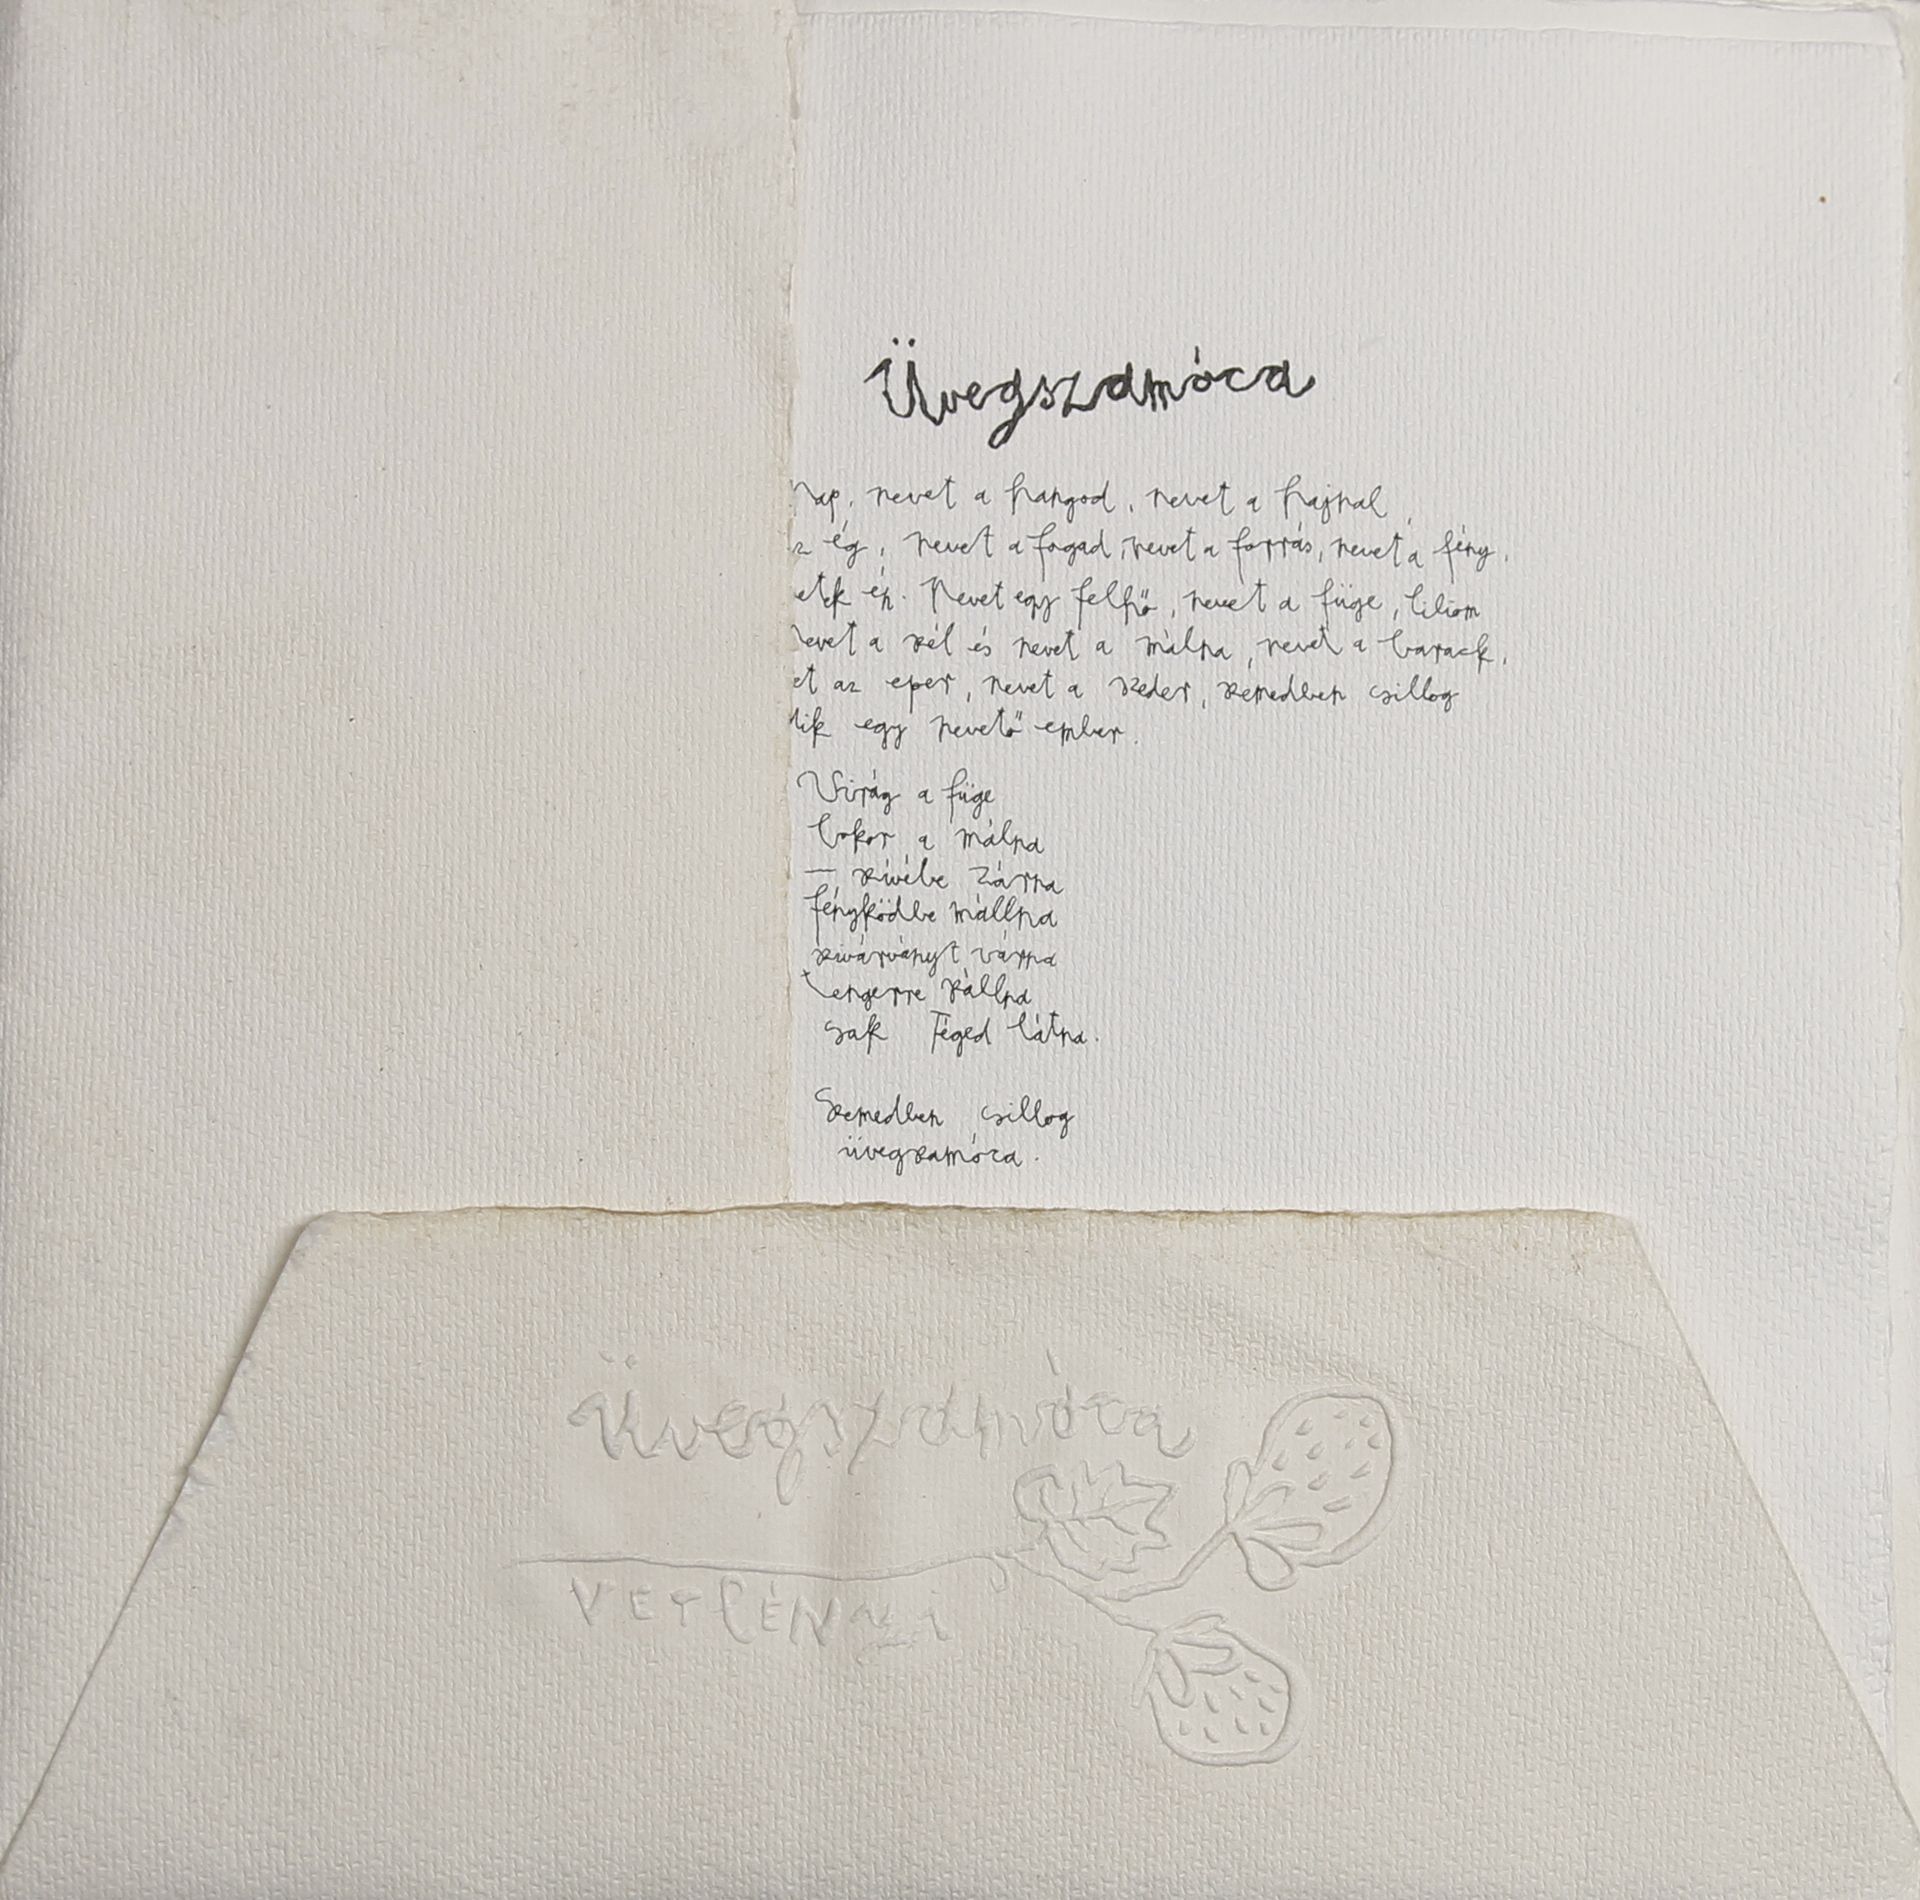 Üvegszamóca
Nap, nevet a hangod, nevet a hajnal,
z ég, nevet a fogad, nevet a forrás, nevet a fény,
etek én. Nevet egy felhő, nevet a füge, liliom
Nevet a szél és nevet a málna, nevet a barack,
et az eper, nevet a szeder, szemedben csillog
dik egy nevető ember.
Virág a füge
bokor a málna
— szívébe zárna
fényködbe mállna
szivárványt várna
tengerre szállna
csak Téged látna.
Szemedben csillog
üvegszamóca.
Üvegszamóca